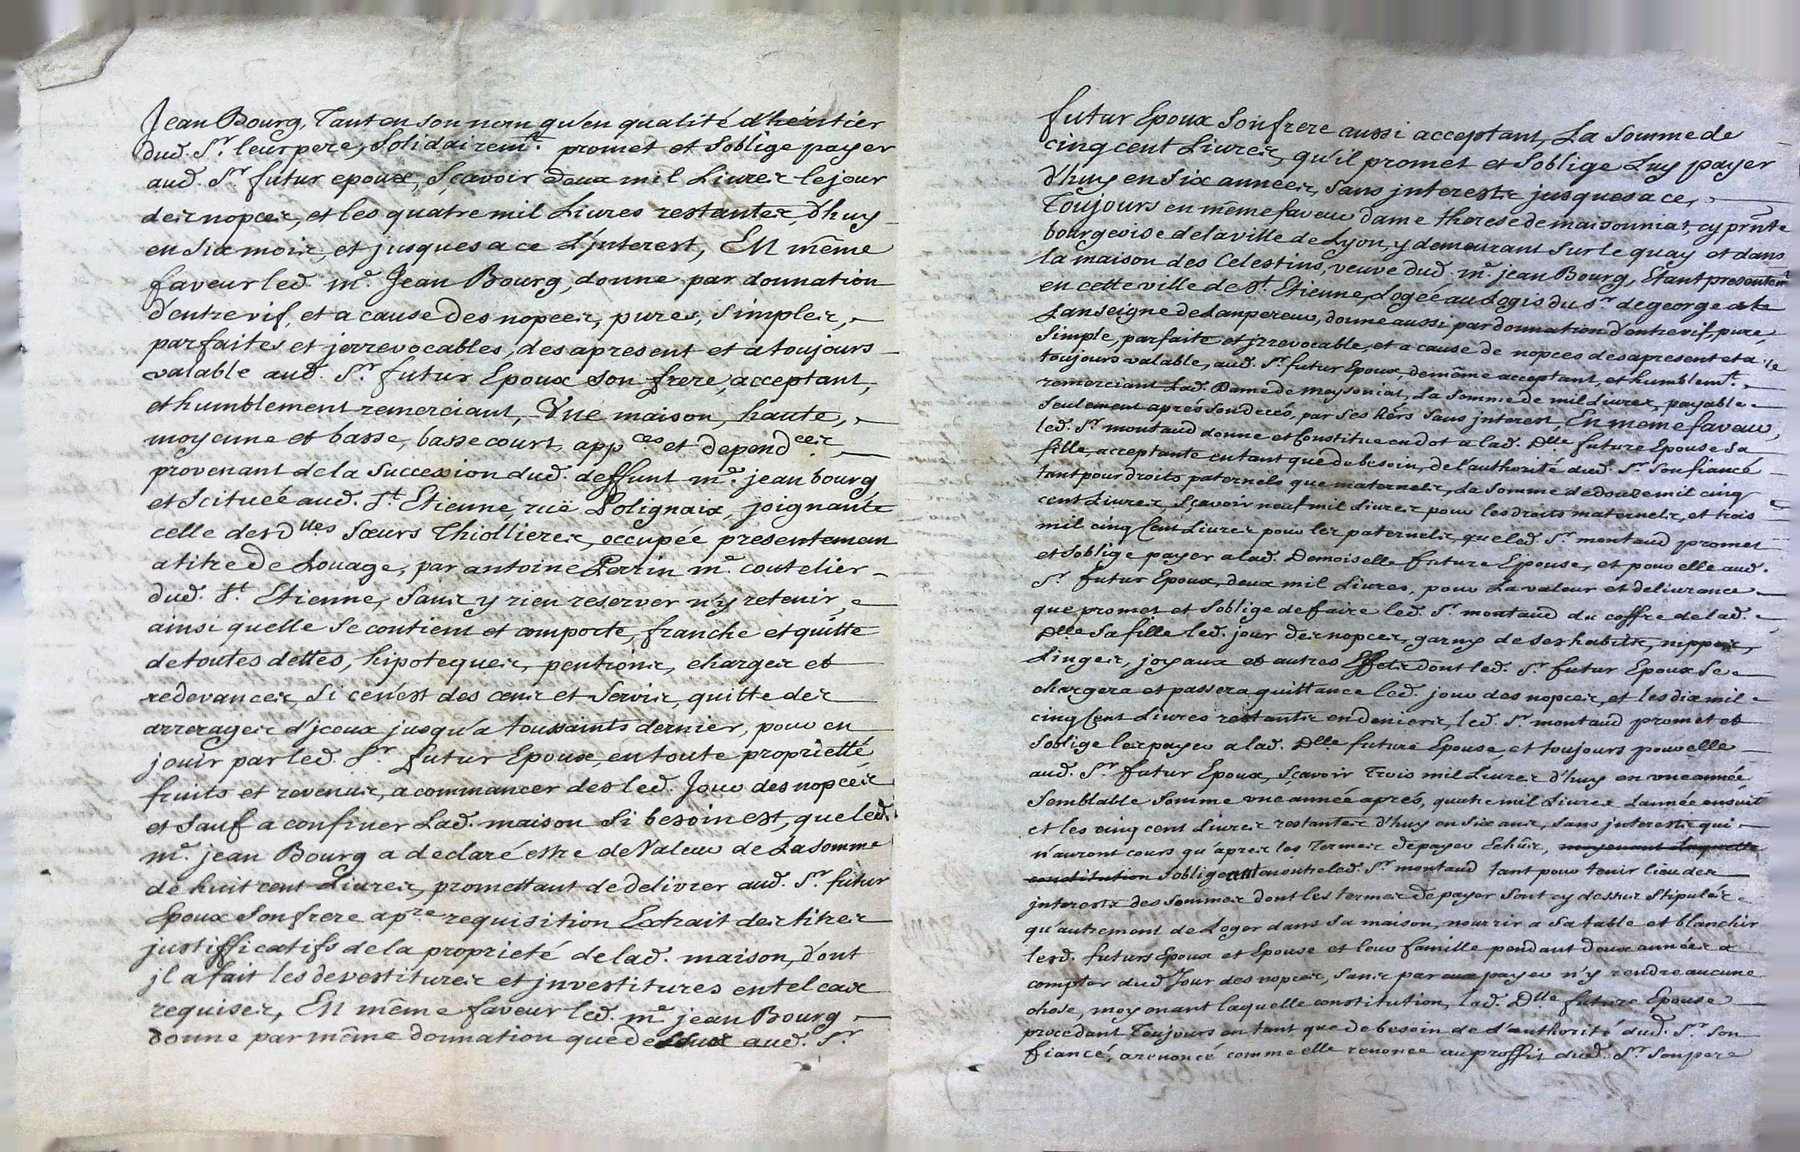 Jean Bourg, Tant en son nom qu'en qualité d'héritier
dud. Sr. leur pere, Solidairemt. promet et S'oblige payer
aud. Sr. futur epoux, Sçavoir deux mil Livres le jour
des nopces, et les quatre mil Livres restantes, d'huy
en Six mois, et jusques a ce L'jnterest, En même
faveur led. mr. Jean Bourg donne par donnation
d'entre vif, et a cause des nopces, pures, Simples,
parfaites et jrrevocables, des apresent et a toujours
valable aud. Sr. futur Epoux son frere, acceptant,
et humblement remerciant, Vne maison, haute,
moyenne et basse, basse court, appces et dependces
provenant de la Succession dud. deffunt mr. jean bourg
et Scituée aud. St. Etienne, ruë Polignais, joignante
celle des Dlles Sœurs Thiollieres, occupée presentemen
a titre de Louage, par antoine Perrin mr. coutelier
dud. St. Etienne, Sans y rien reserver n'y retenir,
ainsi quelle Se contient et comporte, franche et quitte
de toutes dettes, hipoteques, pentions, charges et
redevances, Si ce n'est des cens et Servis, quitte des
arrerages d'jceux jusqu'a toussaints dernier, pour en
jouir par led. Sr. futur Epoux, en toute proprietté
fruits et revenus, a commancer des led. Jour des nopces
et Sauf a confiner Lad. maison Si besoin est, que led.
mr. jean Bourg a declaré estre de Valeur de La Somme
de huit cent Livres, promettant de delivrer aud. Sr. futur
Epoux Son frere apre requisition Extrait des titres
justifficatifs de la proprieté de lad. maison, d'ont
jl a fait les devestitures et jnvestitures en tel cas
requises, En même faveur led. mr. jean Bourg
donne par même donnation que de aud. Sr.
futur Epoux Son frere aussi acceptant, La Somme de
cinq cent Livres, qu'il promet et S'oblige Luy payer
d'huy en Six années, Sans jnterests jusques a ce,
Toujours en même faveur dame therese de maisonniat, cy prnte
bourgeoise de la ville de Lyon, y demeurant Sur le quay et dans
la maison des Celestins, veuve dud. mr. jean Bourg, Etant presentemt
en cette ville de St. Etienne, Logée au Logis du Sr. degeorge
Lanseigne de Lanpereur, donne aussi par donnation d'entre vif, pure,
Simple, parfaite et jrrevocable, et a cause de nopces des apresent et a
toujours valable, aud. Sr. futur Epoux, de même acceptant, et humblemt.
remerciant Lad. Dame de maysoniat, La Somme de mil Livres, payable
Seulement aprés Son deces, par Ses hers Sans jnterest, En meme faveur,
led. Sr. montaud donne et Constitue en dot a lad. Dlle future Epouse Sa
fille, acceptante en tant que de besoin, de l'authorité dud. Sr. Son fiancé
tant pour droits paternels que maternels, La Somme de douze mil cinq
cent Livres, Sçavoir neuf mil Livres pour les droits maternels, et trois
mil cinq Cent Livres pour les paternels, que led. Sr. montaud promet
et S'oblige payer a lad. Demoiselle future Epouse, et pour elle aud.
Sr. futur Epoux, deux mil Livres, pour La valeur et delivrance
que promet et S'oblige de faire led. Sr. montaud du coffre de lad.
Dlle Sa fille led. jour des nopces, garny de Ses habits, nippes,
Linges, joyaux et autres Effets dont led. Sr. futur Epoux Se
chargera et passera quittance led. jour des nopces, et les dix mil
cinq Cent Livres restants en deniers, led. Sr. montaud promet et
S'oblige les payer a lad. Dlle future Epouse, et toujours pour elle
aud. Sr. futur Epoux, Sçavoir Trois mil Livres d'huy en vne année
Semblable Somme vne année aprés, quatre mil Livres L'année ensuit
et les cinq cent Livres restantes d'huy en Six ans, Sans jnterests qui
n'auront cours qu'apres les Termes de payer Echûs, moyenant Laquelle
constitution S'oblige en outre led. Sr. montaud tant pour tenir lieu des
jnterests des Sommes dont les termes de payer Sont cy dessus Stipulés
qu'autrement de Loger dans Sa maison, nourrir a Sa table et blanchir
lesd. futurs Epoux et Epouse et leur famille pendant deux années a
compter dud. Jour des nopces, Sans par eux payer n'y rendre aucune
chose, moyenant laquelle constitution, lad. Dlle future Epouse
procedant Toujours en tant que de besoin de L'authorité dud. Sr. Son
fiancé, a renoncé comme elle renonce au proffit dud. Sr. Son pere